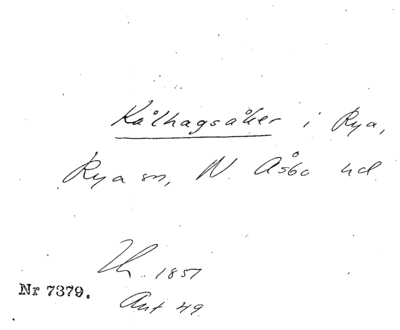 Kålhagsåker i Rya,
Rya sn, N. Åsbo hd
Lh. 1851
Nr 7379.
Ant 49